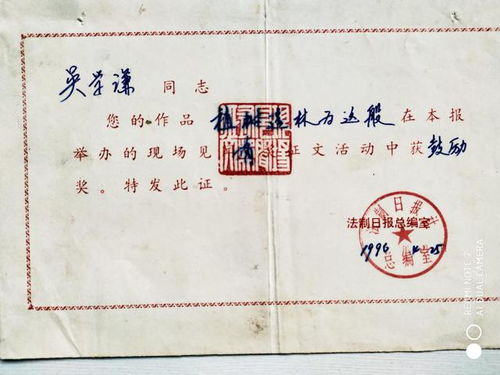 吴学谦 同志
您的作品 植树造林为这般 在本报
举办的现场见 征文活动中获 鼓励
奖。特发此证。
法制日报总编室
1996
法制日报社
总编室
REDMI NOTE 7
AI DUAL CAMERA